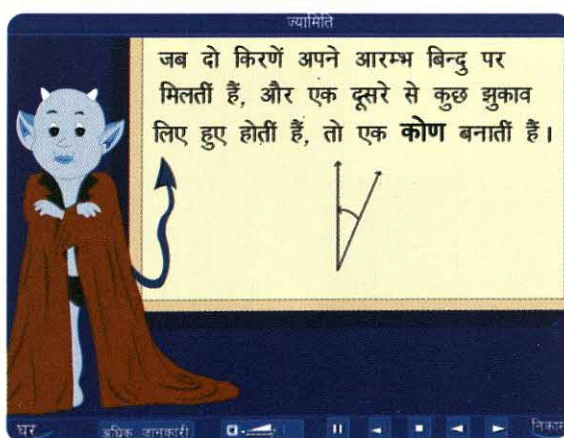 ज्यामिति
जब दो किरणें अपने आरम्भ बिन्दु पर
मिलतीं हैं, और एक दूसरे से कुछ झुकाव
लिए हुए होतीं हैं, तो एक कोण बनातीं हैं।
घर अधिक जानकारी निकास